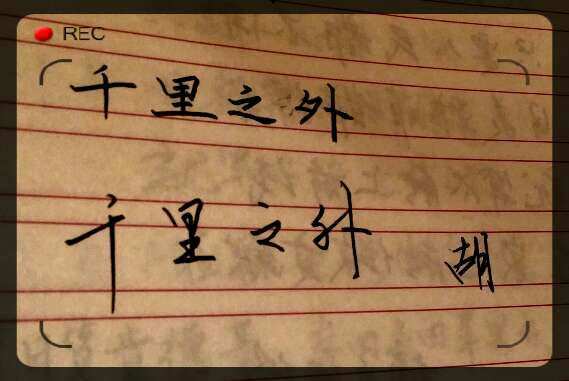 REC
千里之外
千里之外
湖